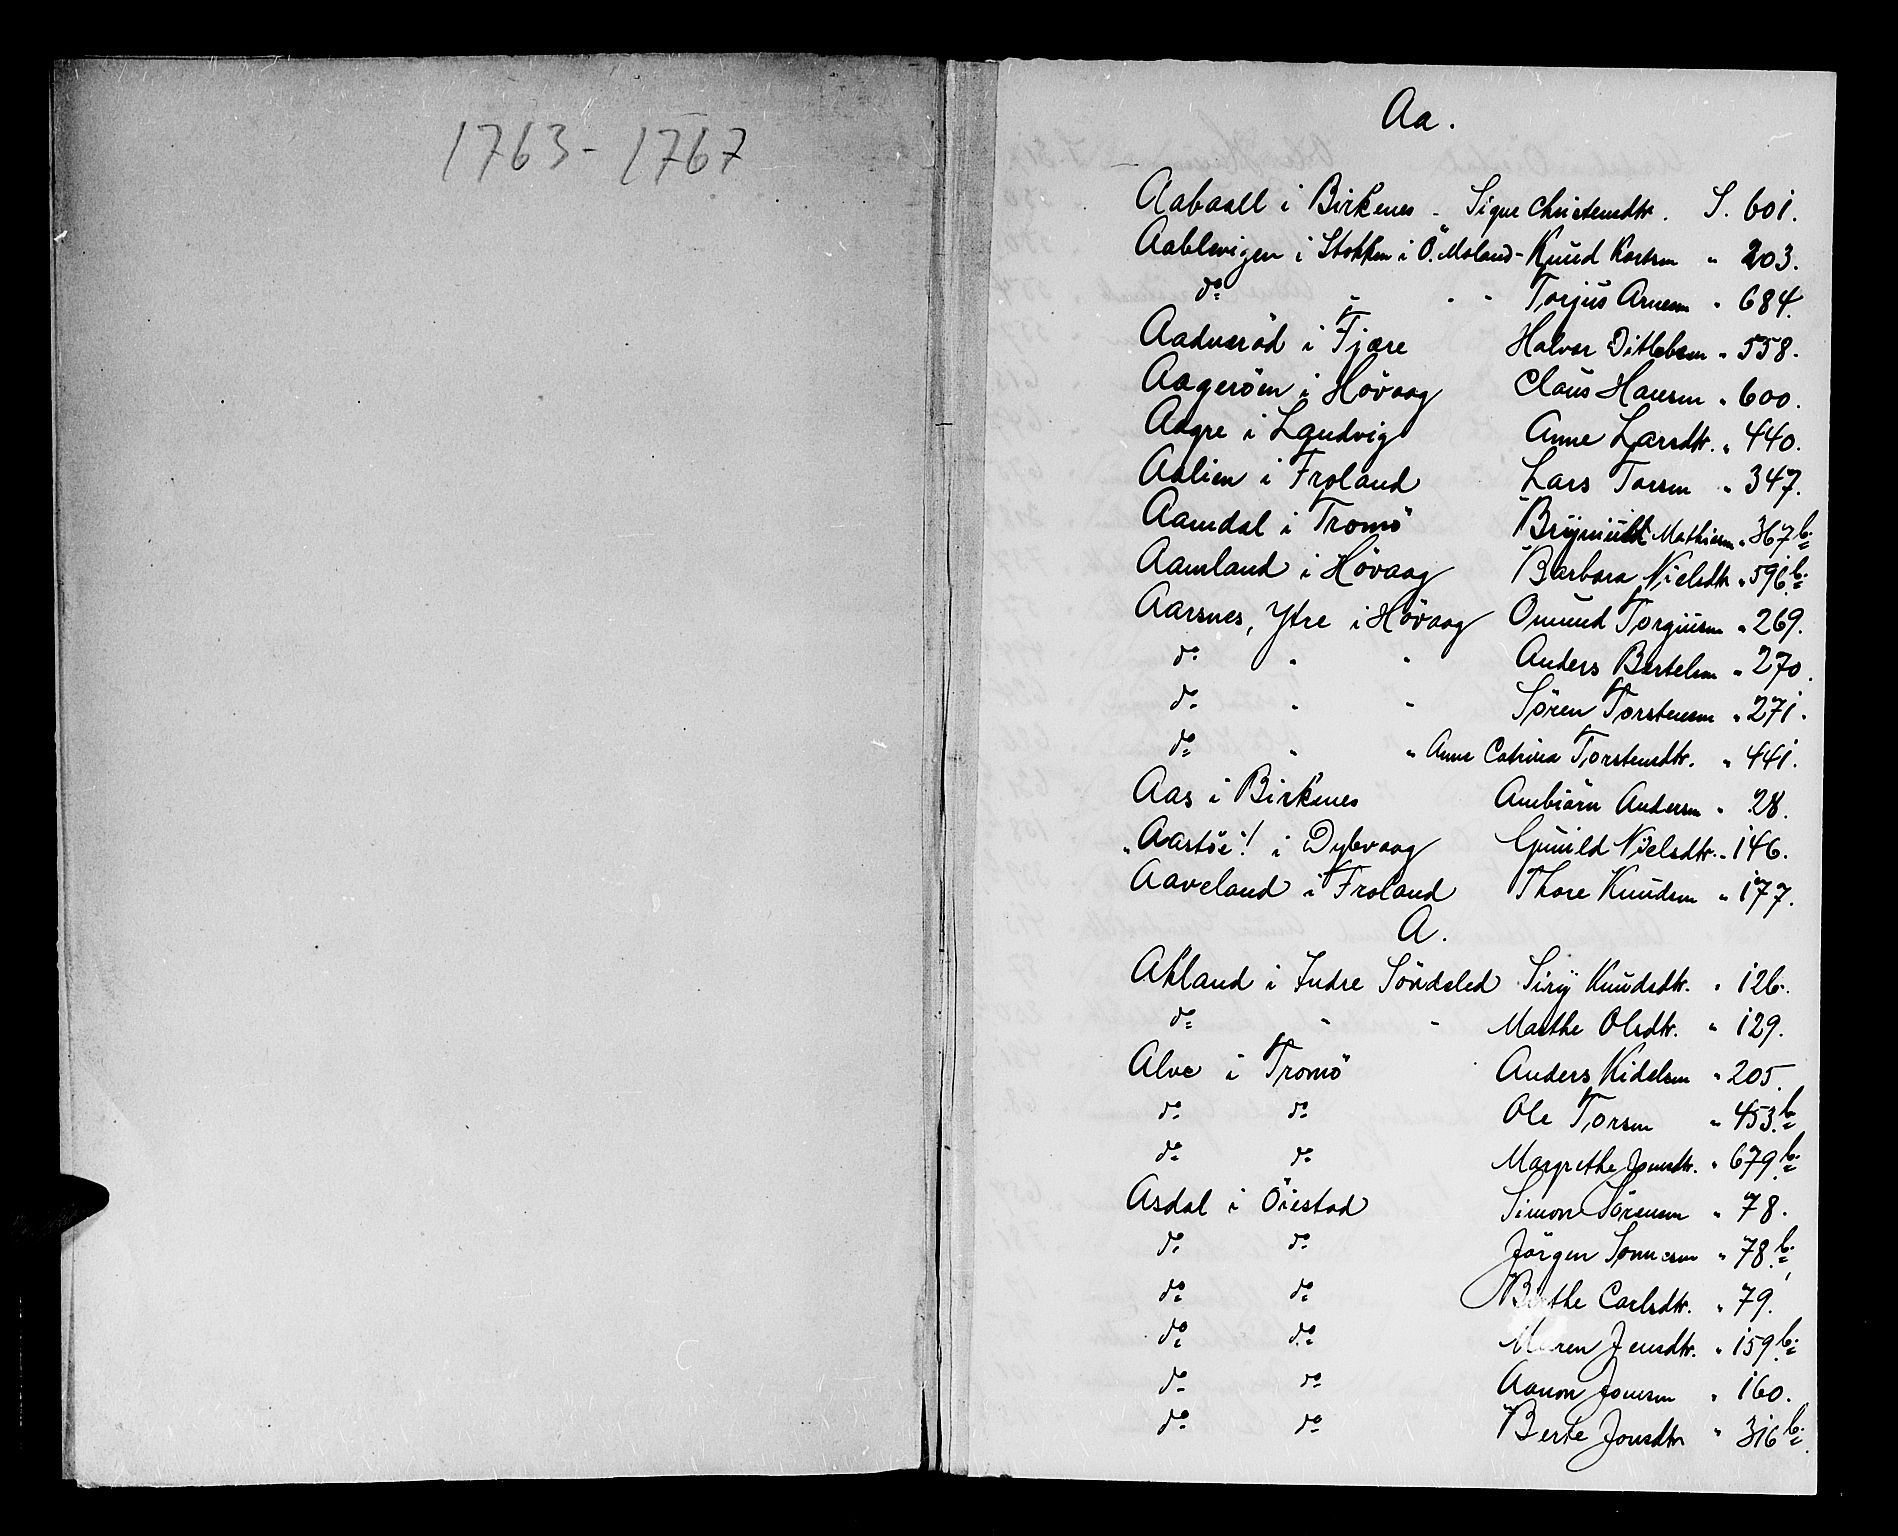 1763-1767
Aa.
Aabaall i Birkenes - Signe Christensdtr. S. 601.
Aablevigen i Stokken i Ö. Moland - Knud " 203.
do " " " Torjus Arnesen " 684.
Aadneröd i Fjære Halvor Ditlefsen " 558.
Aageröen i Hövaag Claus Hansen " 600.
Aagre i Landvig Anne Larsdtr. " 440.
Aalien i Froland Lars Torsen " 347.
Aamdal i Tromö Mathisen " 367 b.
Aamland i Hövaag Barbara Nielsdtr " 596 b.
Aarsnes, Ytre i Hövaag Omund Torgiusen " 269.
do " " Anders Bertelsen " 270.
do " " Sören Torstensen " 271.
do " " Anne Catrina Torstensdtr. " 441.
Aas i Birkenes Anbiörn Andersen " 28.
"Aastöe"! i Dybvaag Gunild Nielsdtr. " 146.
Aaveland i Froland Thore Knudsen " 177.
A.
Akland i Indre Söndeled Sirij Knudsdtr. " 126.
do " " Marthe Olsdtr. " 129.
Alve i Tromö Anders Kidelsen " 205.
do do Ole Torsen " 453 b.
do do Margrethe Jonsdtr. " 679 b.
Asdal i Öiestad Simon Sörensen " 78.
do do Jörgen " 78 b.
do do Berthe Carlsdtr. " 79.
do do Maren Jensdtr. " 159 b.
do do Aanon Jonsen " 160.
do do Berte Jonsdtr " 316 b.